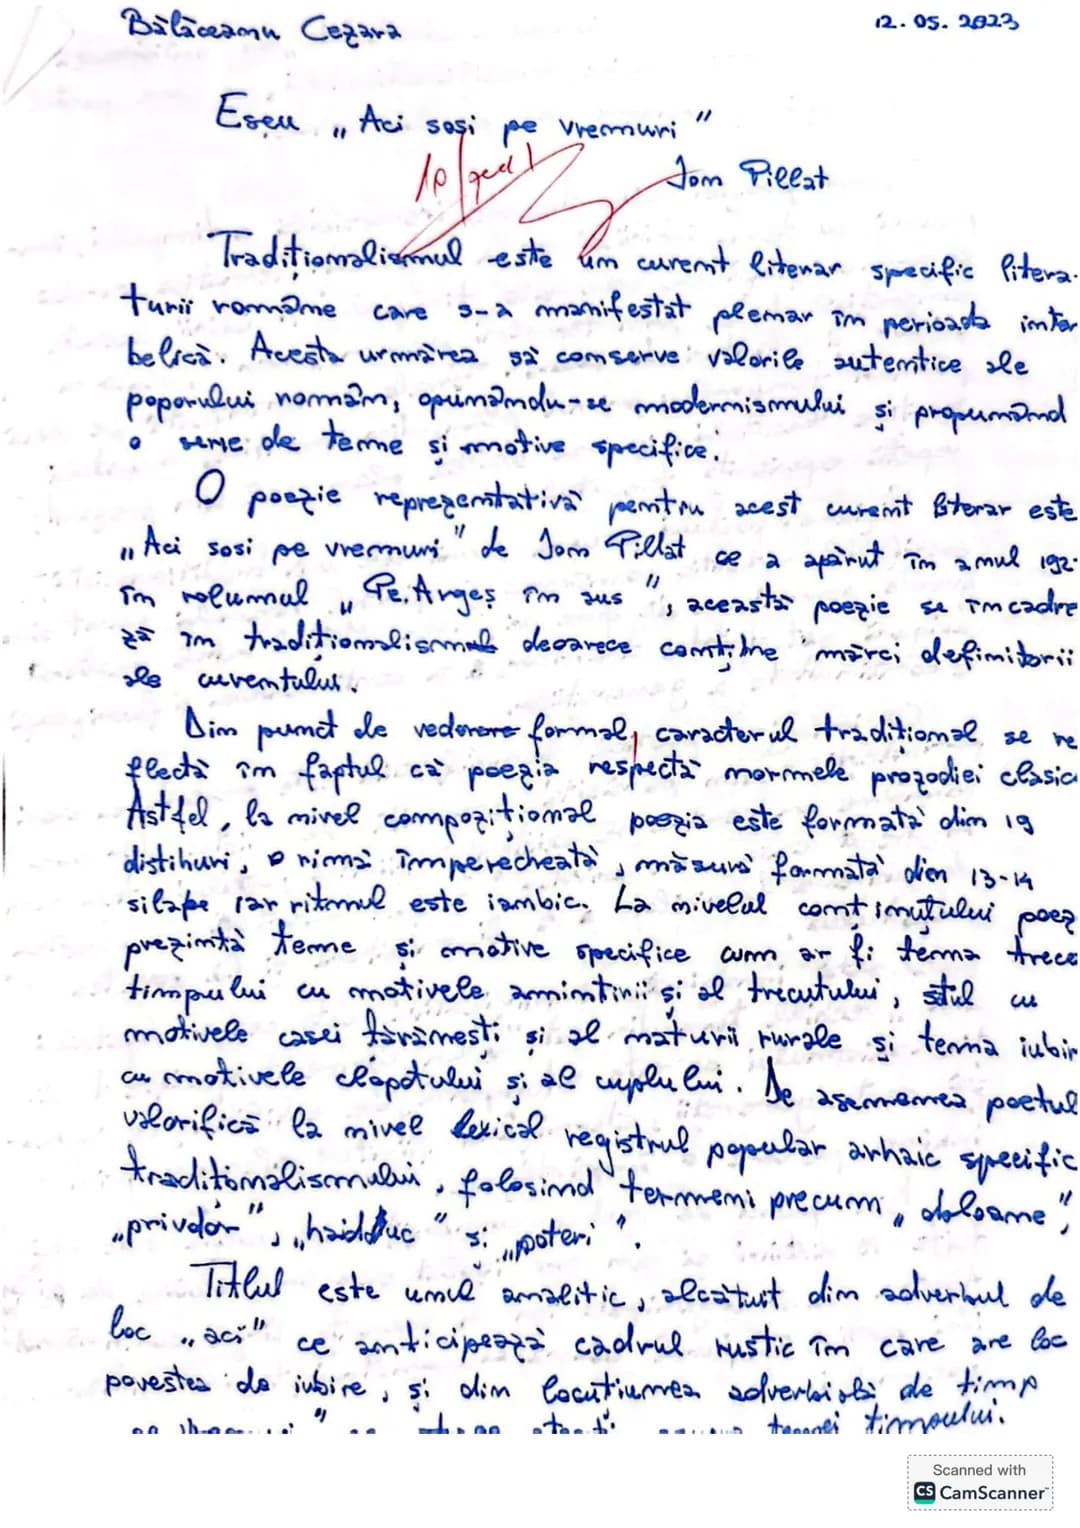 Bălăceanu Cezara 12.05.2023
Eseu „Aci sosi pe vremuri"
10/
Ion Pillat
Tradiționalismul este un curent literar specific litera-
turii române care s-a manifestat plenar în perioada inter
belică. Acesta urmărea să conserve valorile autentice ale
poporului român, opunându-se modernismului și propunând
o serie de teme și motive specifice.
O poezie reprezentativă pentru acest curent literar este
„Aci sosi pe vremuri" de Ion Pillat ce a apărut în anul 192
în volumul „Pe Argeș în sus", această poezie se încadre
ză în tradiționalismul deoarece conține mărci definitorii
ale curentului.
Din punct de vedere formal, caracterul tradițional se re
flectă în faptul că poezia respectă normele prozodiei clasic
Astfel, la nivel compozițional poezia este formată din 19
distihuri, o rimă împerecheată, măsură formată din 13-14
silabe iar ritmul este iambic. La nivelul conținutului poez
prezintă teme și motive specifice cum ar fi tema trece
timpului cu motivele amintirii și al trecutului, satul cu
motivele casei țărănești și al naturii rurale și tema iubir
cu motivele clopotului și al cuplului. De asemenea poetul
valorifică la nivel lexical registrul popular arhaic specific
tradiționalismului, folosind termeni precum „obloane",
„pridvor", „haiduc" și „poteri".
Titlul este unul analitic, alcătuit din adverbul de
loc „aci" ce anticipează cadrul rustic în care are loc
povestea de iubire, și din locuțiunea adverbială de timp
temei timpului.
Scanned with
CS CamScanner